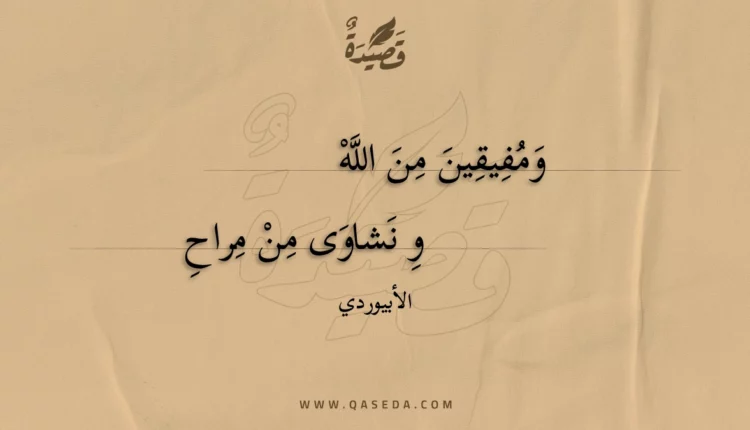 قَصِيْدَةٌ
وَمُفِيقِينَ مِنَ اللَّهْ
وِ نَشاوَى مِنْ مِراحِ
الأبيوردي
WWW.QASEDA.COM